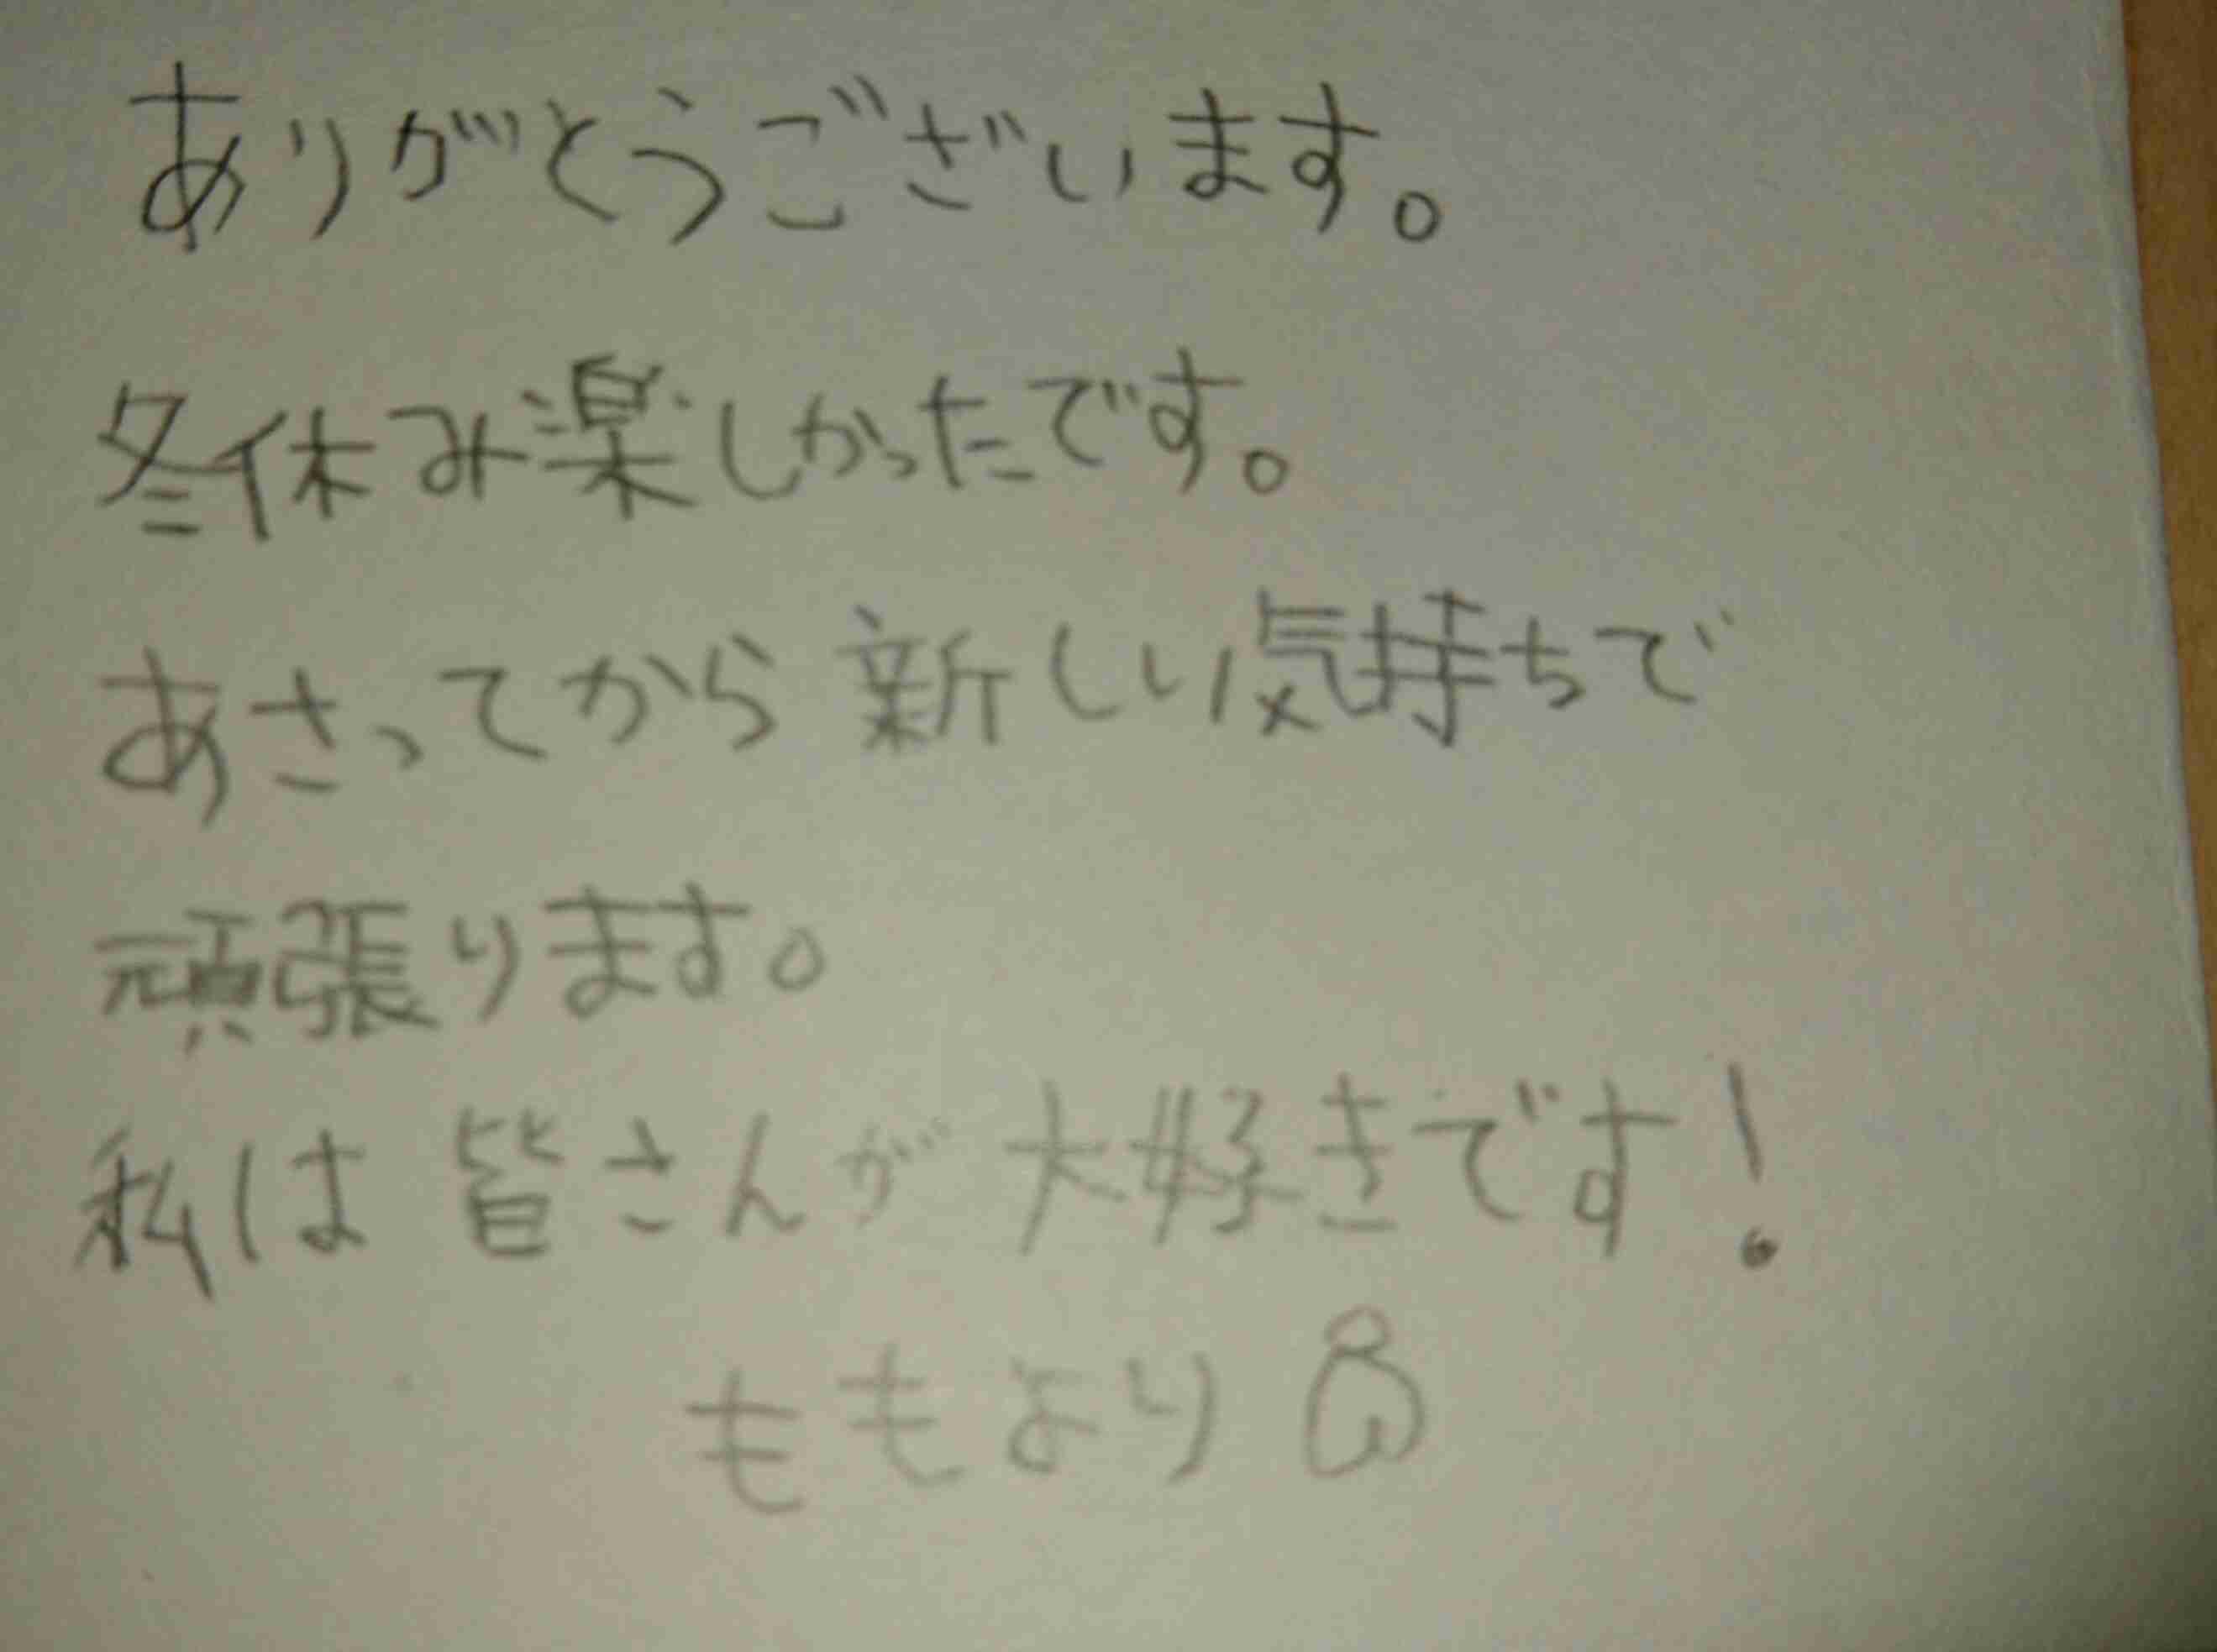 ありがとうございます。
冬休み楽しかったです。
あさってから新しい気持ちで
頑張ります。
私は皆さんが大好きです!
ももより